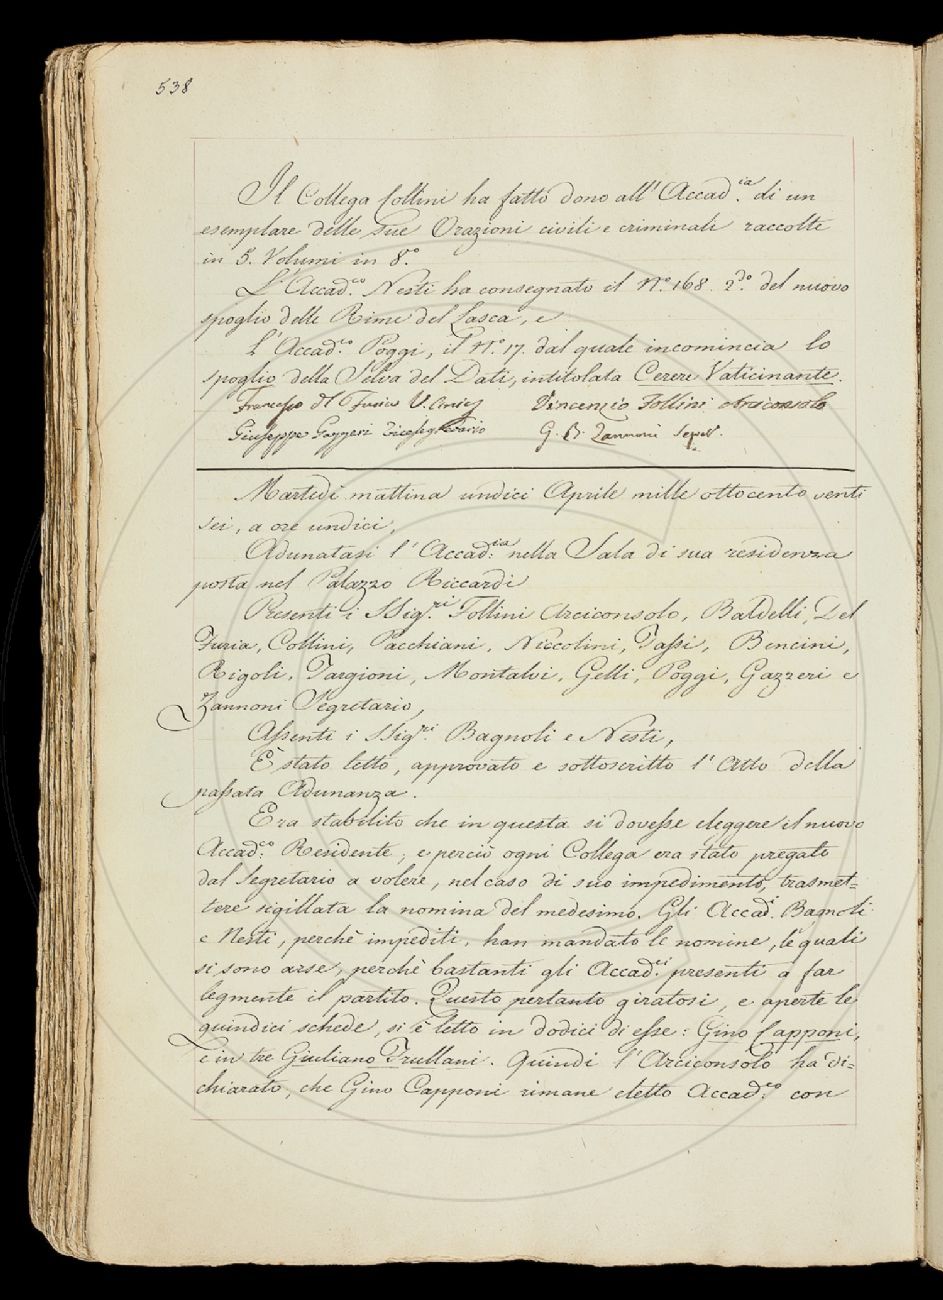 538
Il Collega Collini ha fatto dono all'Accad.ia di un
esemplare delle sue Orazioni civili e criminali raccolte
in 5. Volumi in 8.vo
L'Accad.co Nesti ha consegnato il N.o 168. 2.do del nuovo
spoglio delle Rime del Lasca, e
L'Accad.co Poggi, il N.o 17. dal quale incomincia lo
spoglio della Selva del Dati, intitolata Cerere Vaticinante.
Francesco del Furia Vincenzio Follini Arciconsolo
Giuseppe Gazzeri Vicesegretario G. B. Zannoni Segret.
Martedì mattina undici Aprile mille ottocento venti
sei, a ore undici,
Adunatasi l'Accad.ia nella Sala di sua residenza
posta nel Palazzo Riccardi
Presenti i SSig.ri Follini Arciconsolo, Baldelli, Del
Furia, Collini, Pacchiani, Niccolini, Tassi, Bencini,
Rigoli, Targioni, Montalvi, Gelli, Poggi, Gazzeri e
Zannoni Segretario,
Assenti i SSig.ri Bagnoli e Nesti,
È stato letto, approvato e sottoscritto l'Atto della
passata Adunanza.
Era stabilito che in questa si dovesse eleggere il nuovo
Accad.co Residente; e perciò ogni Collega era stato pregato
dal Segretario a volere, nel caso di suo impedimento, trasmet=
tere sigillata la nomina del medesimo. Gli Accad.i Bagnoli
e Nesti, perchè impediti, han mandato le nomine, le quali
si sono arse, perchè bastanti gli Accad.ci presenti a far
legmente il partito. Questo pertanto giratosi, e aperte le
quindici schede, si è letto in dodici di esse: Gino Capponi,
e in tre Giuliano Frullani. Quindi l'Arciconsolo ha di=
chiarato, che Gino Capponi rimane eletto Accad.co con